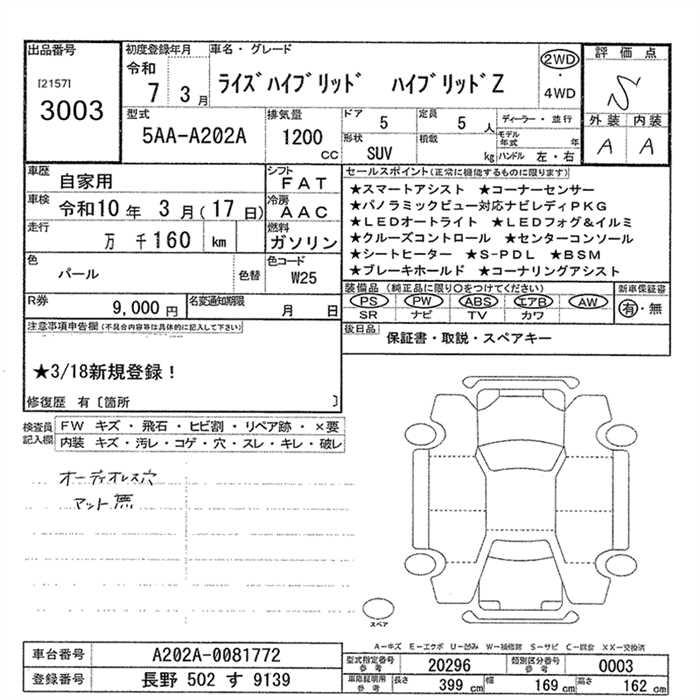 出品番号
[2157]
3003
初度登録年月
令和
7 3月
車名・グレード
ライズハイブリッド ハイブリッドZ
2WD
・
4WD
評価点
S
外装 内装
A A
型式
5AA-A202A
排気量
1200
cc
ドア
5
定員
5 人
形状
SUV
積載
kg
ディーラー・並行
モデル年式 年
ハンドル 左・右
車歴
自家用
シフト
FAT
車検
令和10年 3月(17日)
冷房
AAC
走行
万 千160 km
燃料
ガソリン
色
パール
色替
色コード
W25
R券
9,000 円
名変通知期限
月 日
セールスポイント(正常に機能するものに限ります)
★スマートアシスト ★コーナーセンサー
★パノラミックビュー対応ナビレディPKG
★LEDオートライト ★LEDフォグ&イルミ
★クルーズコントロール ★センターコンソール
★シートヒーター ★S-PDL ★BSM
★ブレーキホールド ★コーナリングアシスト
装備品(純正品に限り○をつけてください)
PS PW ABS エアB AW
SR ナビ TV カワ
新車保証書
有・無
後日品
保証書・取説・スペアキー
注意事項申告欄(不具合内容等は具体的に記入して下さい)
★3/18新規登録！
修復歴 有〔箇所 〕
検査員
記入欄
FW キズ・飛石・ヒビ割・リペア跡・×要
内装 キズ・汚レ・コゲ・穴・スレ・キレ・破レ
オーディオレス穴
マット無
スペア
A-キズ E-エクボ U-凹み W-補修跡 S-サビ C-腐食 XX-交換済
車台番号
A202A-0081772
登録番号
長野 502 す 9139
型式指定番号
参考
20296
類別区分番号
参考
0003
車庫証明用
参考
長さ
399 cm
幅
169 cm
高さ
162 cm